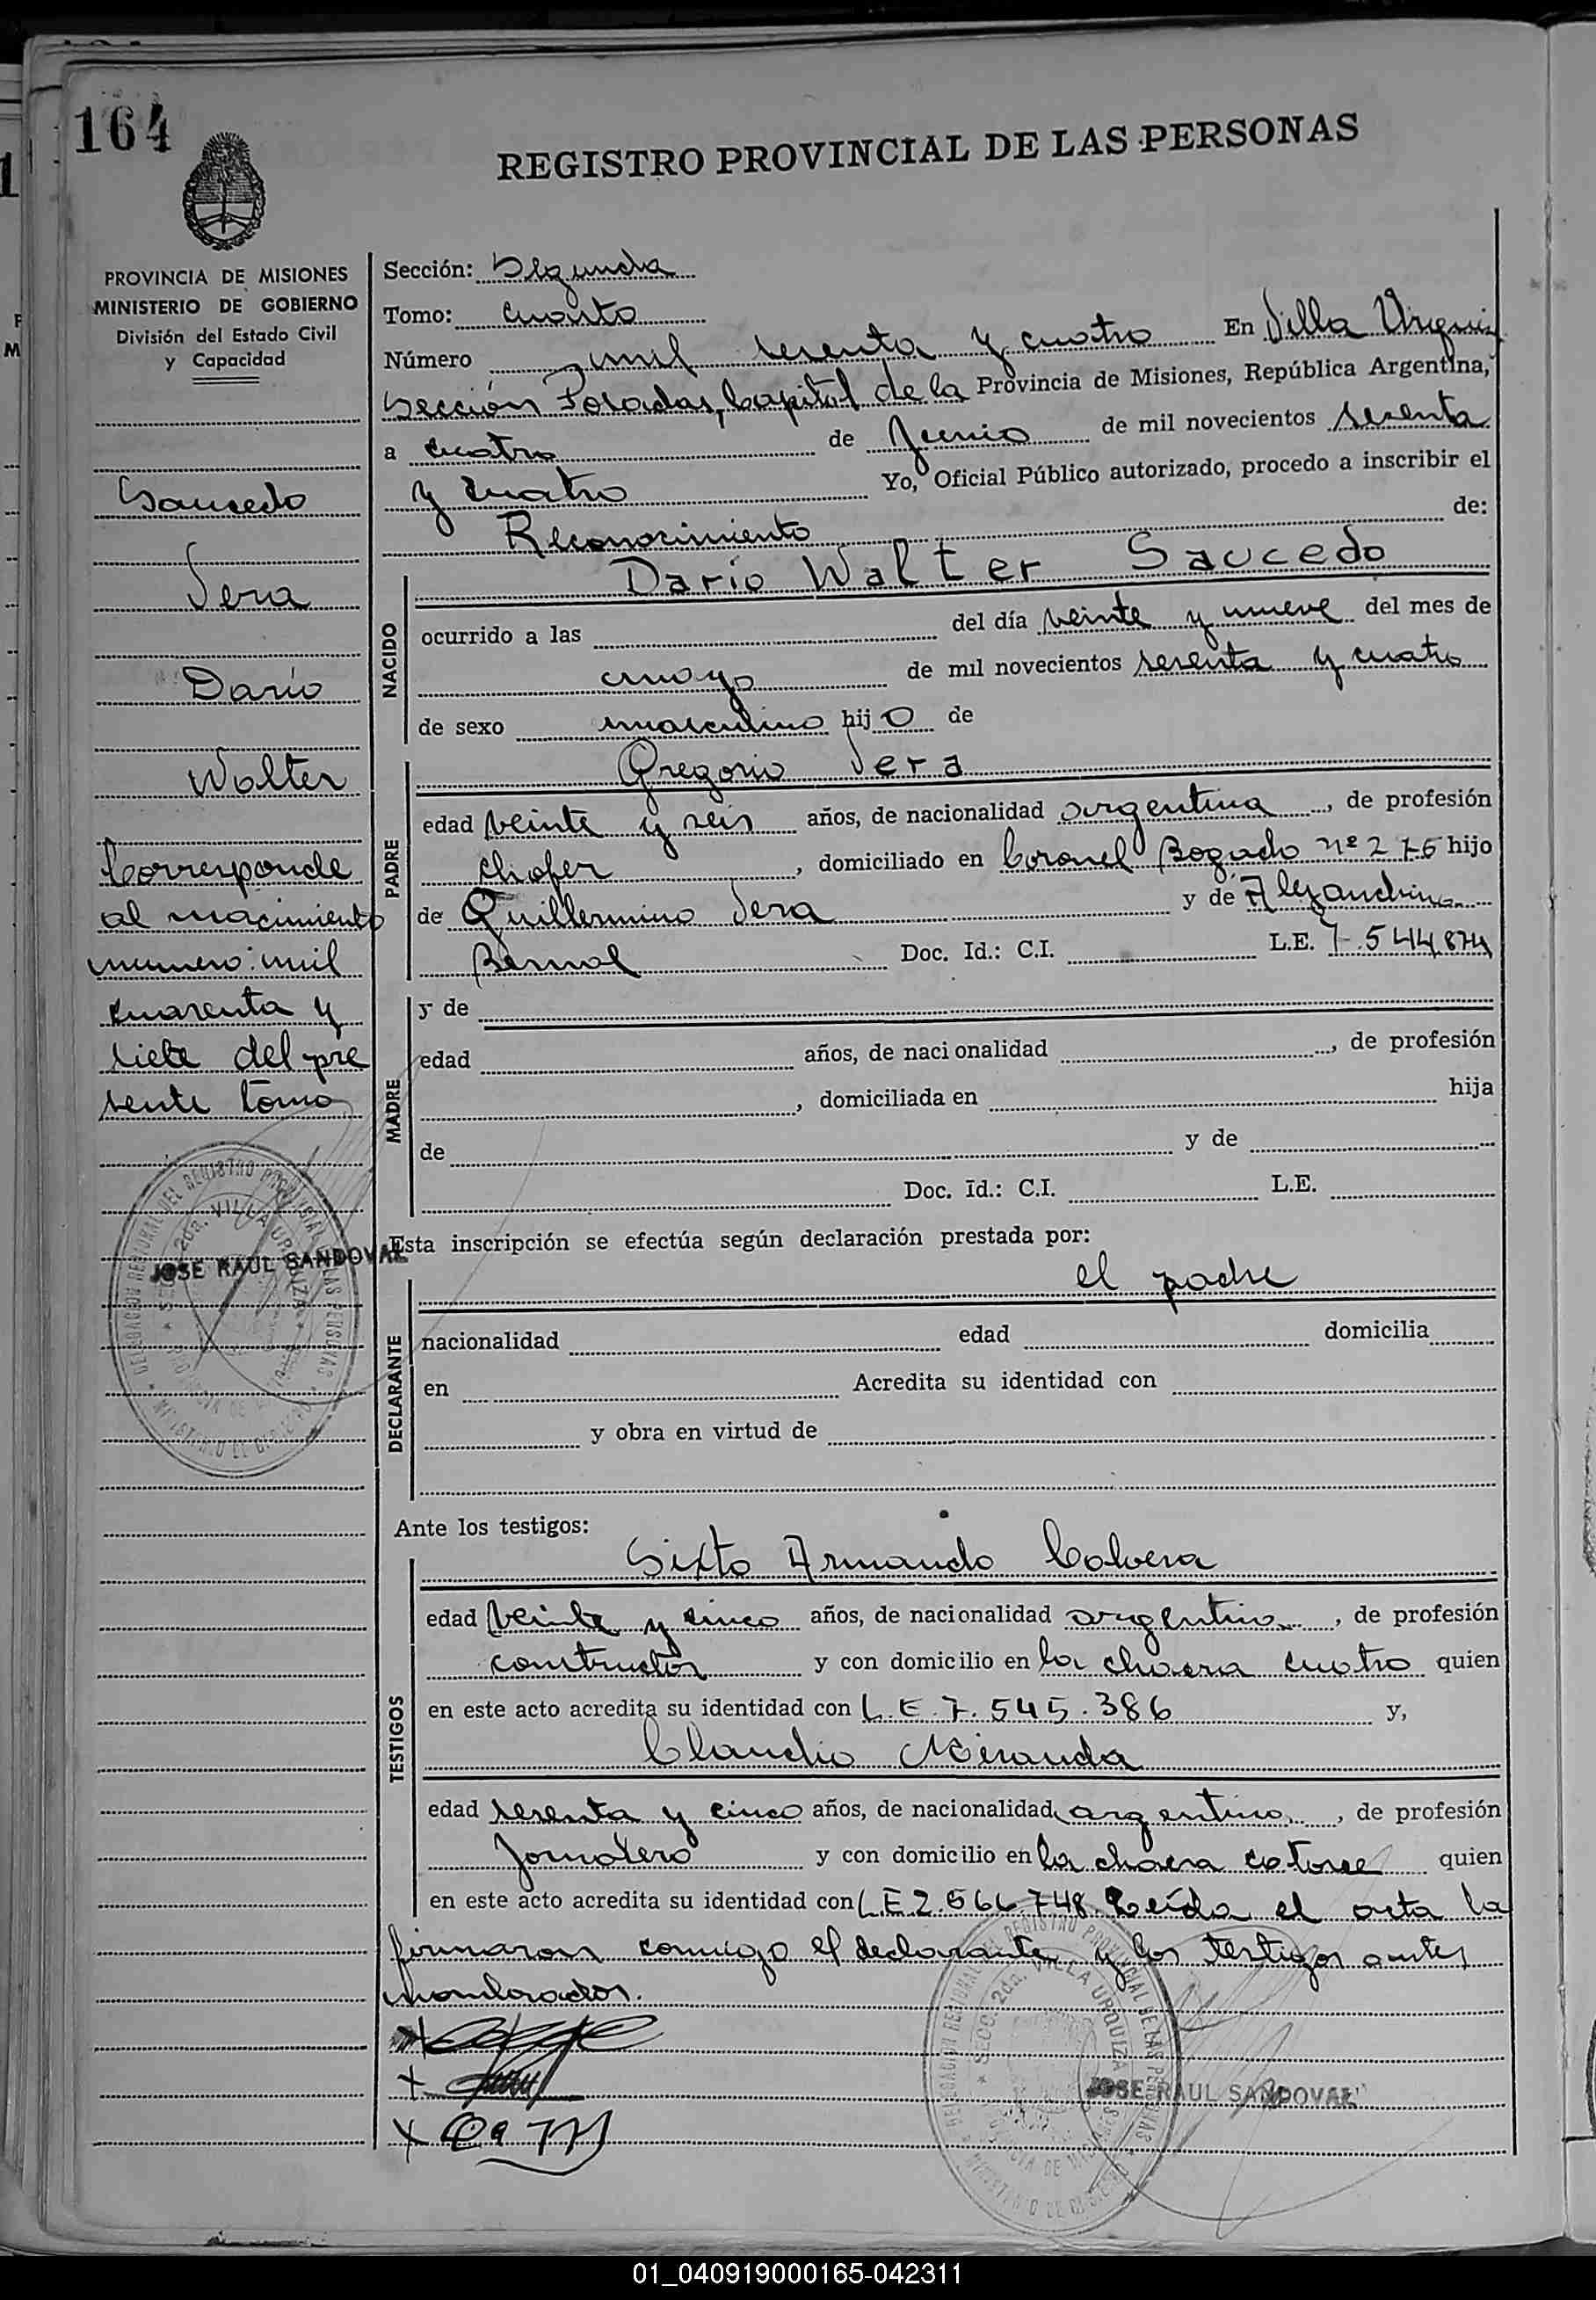 164
REGISTRO PROVINCIAL DE LAS PERSONAS
PROVINCIA DE MISIONES
MINISTERIO DE GOBIERNO
División del Estado Civil
y Capacidad
Saucedo
Vera
Darío
Walter
Corresponde
al nacimiento
numero: mil
cuarenta y
siete del pre
sente tomo
JOSE RAUL SANDOVAL
Sección: Segunda
Tomo: cuarto
Número mil sesenta y cuatro En Villa Urquiz
Sección Posadas, Capital de la Provincia de Misiones, República Argentina,
a cuatro de Junio de mil novecientos sesenta
y cuatro Yo, Oficial Público autorizado, procedo a inscribir el
Reconocimiento de:
NACIDO
Darío Walter Saucedo
ocurrido a las del día veinte y nueve del mes de
mayo de mil novecientos sesenta y cuatro
de sexo masculino hijo de
PADRE
Gregorio Vera
edad veinte y seis años, de nacionalidad argentina, de profesión
chofer, domiciliado en Coronel Bogado nº 276 hijo
de Guillermino Vera y de Alejandrina
Bernal Doc. Id.: C.I. L.E. 7.544.874
MADRE
y de
edad años, de nacionalidad, de profesión
, domiciliada en hija
de y de
Doc. Id.: C.I. L.E.
Esta inscripción se efectúa según declaración prestada por:
DECLARANTE
el padre
nacionalidad edad domicilia
en Acredita su identidad con
y obra en virtud de
Ante los testigos:
TESTIGOS
Sixto Armando
edad veinte y cinco años, de nacionalidad argentino, de profesión
constructor y con domicilio en la chacra cuatro quien
en este acto acredita su identidad con L.E. 7.545.386 y,
Claudio Miranda
edad sesenta y cinco años, de nacionalidad argentino, de profesión
Jornalero y con domicilio en la chacra catorce quien
en este acto acredita su identidad con L.E 2.566.748. Leída el acta la
firmaron conmigo el declarante y los testigos antes
nombrados.
DELEGACION REGIONAL DEL REGISTRO PROVINCIAL DE LAS PERSONAS
SECC. 2da. VILLA URQUIZA
PROVINCIA DE MISIONES
MINISTERIO DE GOBIERNO
JOSE RAUL SANDOVAL
01_040919000165-042311